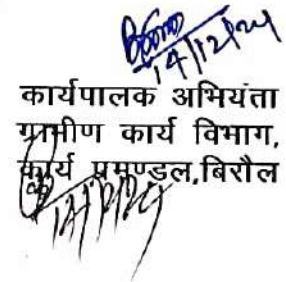 14/12/24
कार्यपालक अभियंता
ग्रामीण कार्य विभाग,
कार्य प्रमण्डल,बिरौल